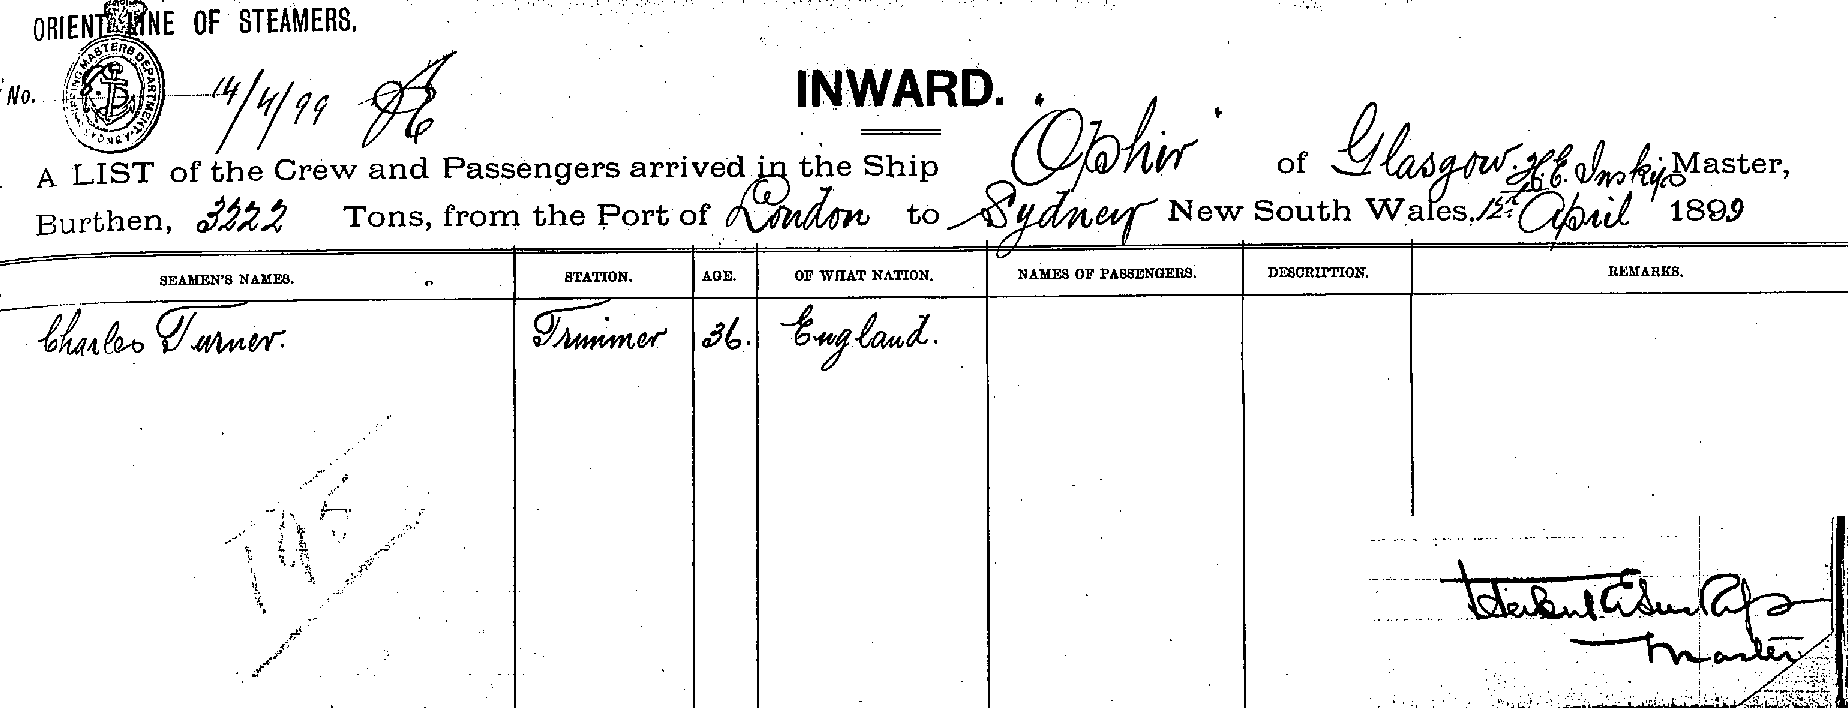 ORIENT LINE OF STEAMERS.
No. 14/4/99
SHIPPING MASTERS DEPARTMENT
INWARD.
A LIST of the Crew and Passengers arrived in the Ship "Ophir" of Glasgow. H.E. Inskip Master,
Burthen, 3222 Tons, from the Port of London to Sydney New South Wales, April 1899
SEAMEN'S NAMES. STATION. AGE. OF WHAT NATION. NAMES OF PASSENGERS. DESCRIPTION. REMARKS.
Charles Turner. Trimmer 36. England.
Master